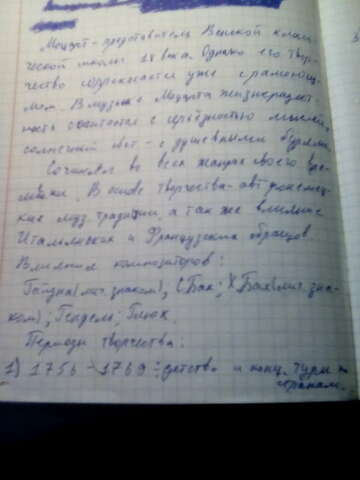 Моцарт - представитель Венской класси-
ческой школы 18 века. Однако его твор-
чество соприкасается уже с романтиз-
мом. В музыке Моцарта жизнерадост-
ность сочетается с серьёзностью мыслей
солнечный свет - с душевными бурями
Сочинял во всех жанрах своего вре-
мени. В основе творчества - австро-немец-
кие муз. традиции, а так же влияние
Итальянских и Французских образцов.
Влияния композиторов:
Гайдна (лич. знаком), С. Бах; Х. Бах (лич. зна-
ком); Гендель; Глюк.
Периоды творчества:
1) 1756 - 1769: детство и конц. туры по
странам.